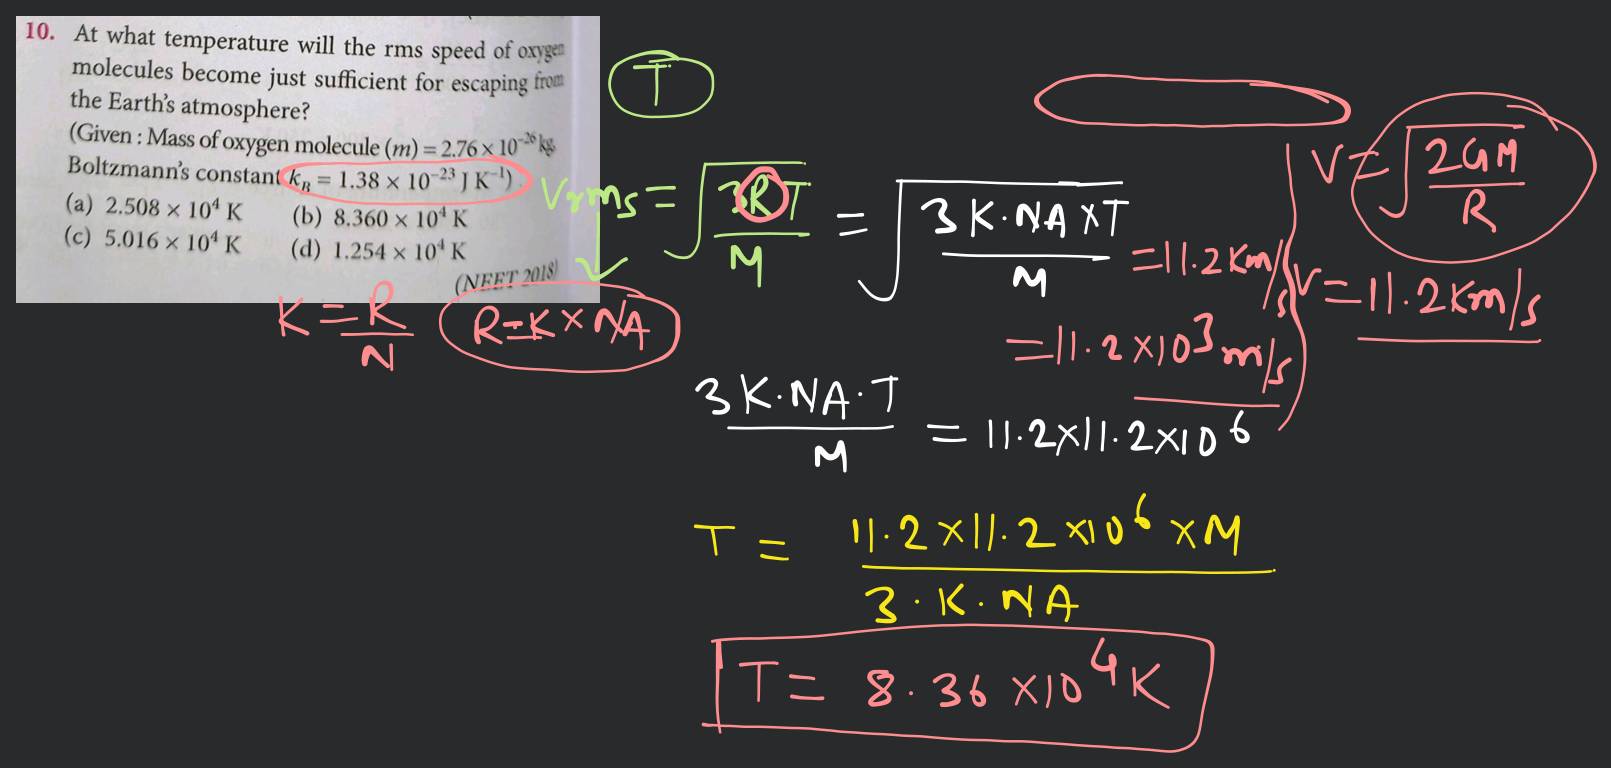 10. At what temperature will the rms speed of oxygen
molecules become just sufficient for escaping from
the Earth's atmosphere?
(Given : Mass of oxygen molecule (m) = 2.76 × 10⁻²⁶ kg,
Boltzmann's constant k_B = 1.38 × 10⁻²³ J K⁻¹)
(a) 2.508 × 10⁴ K (b) 8.360 × 10⁴ K
(c) 5.016 × 10⁴ K (d) 1.254 × 10⁴ K
(NEET 2018)
K = R/N
R = K × NA
T
Vrms = √(3RT/M) = √(3K·NA×T/M) = 11.2 Km/s
= 11.2 × 10³ m/s
V = √(2GM/R)
V = 11.2 Km/s
3K·NA·T/M = 11.2×11.2×10⁶
T = 11.2×11.2×10⁶×M/3·K·NA
T = 8.36 ×10⁴ K